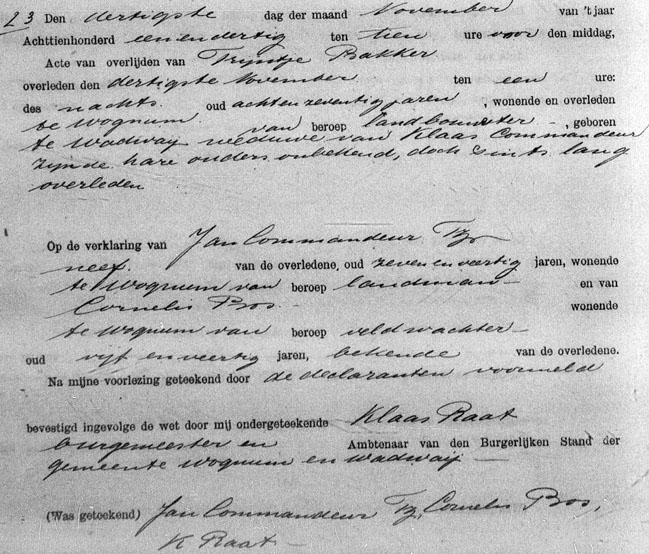 23 Den dertigste dag der maand November van 't jaar
Achttienhonderd een en dertig ten tien ure voor den middag,
Acte van overlijden van Trijntje Bakker
overleden den dertigste November ten een ure:
des nachts. oud acht en zeventig jaren, wonende en overleden
te Wognum van beroep landbouwster -, geboren
te Wadway weduwe van Klaas Commandeur
zijnde hare ouders onbekend, doch sints lang
overleden
Op de verklaring van Jan Commandeur Tz
neef. van de overledene, oud zeven en veertig jaren, wonende
te Wognum van beroep landman - en van
Cornelis Bos - wonende
te Wognum van beroep veldwachter -
oud vijf en veertig jaren, bekende van de overledene.
Na mijne voorlezing geteekend door de declaranten voormeld
bevestigd ingevolge de wet door mij ondergeteekende Klaas Raat
burgemeester en Ambtenaar van den Burgerlijken Stand der
gemeente Wognum en Wadway -
(Was geteekend) Jan Commandeur Tz, Cornelis Bos,
K Raat -